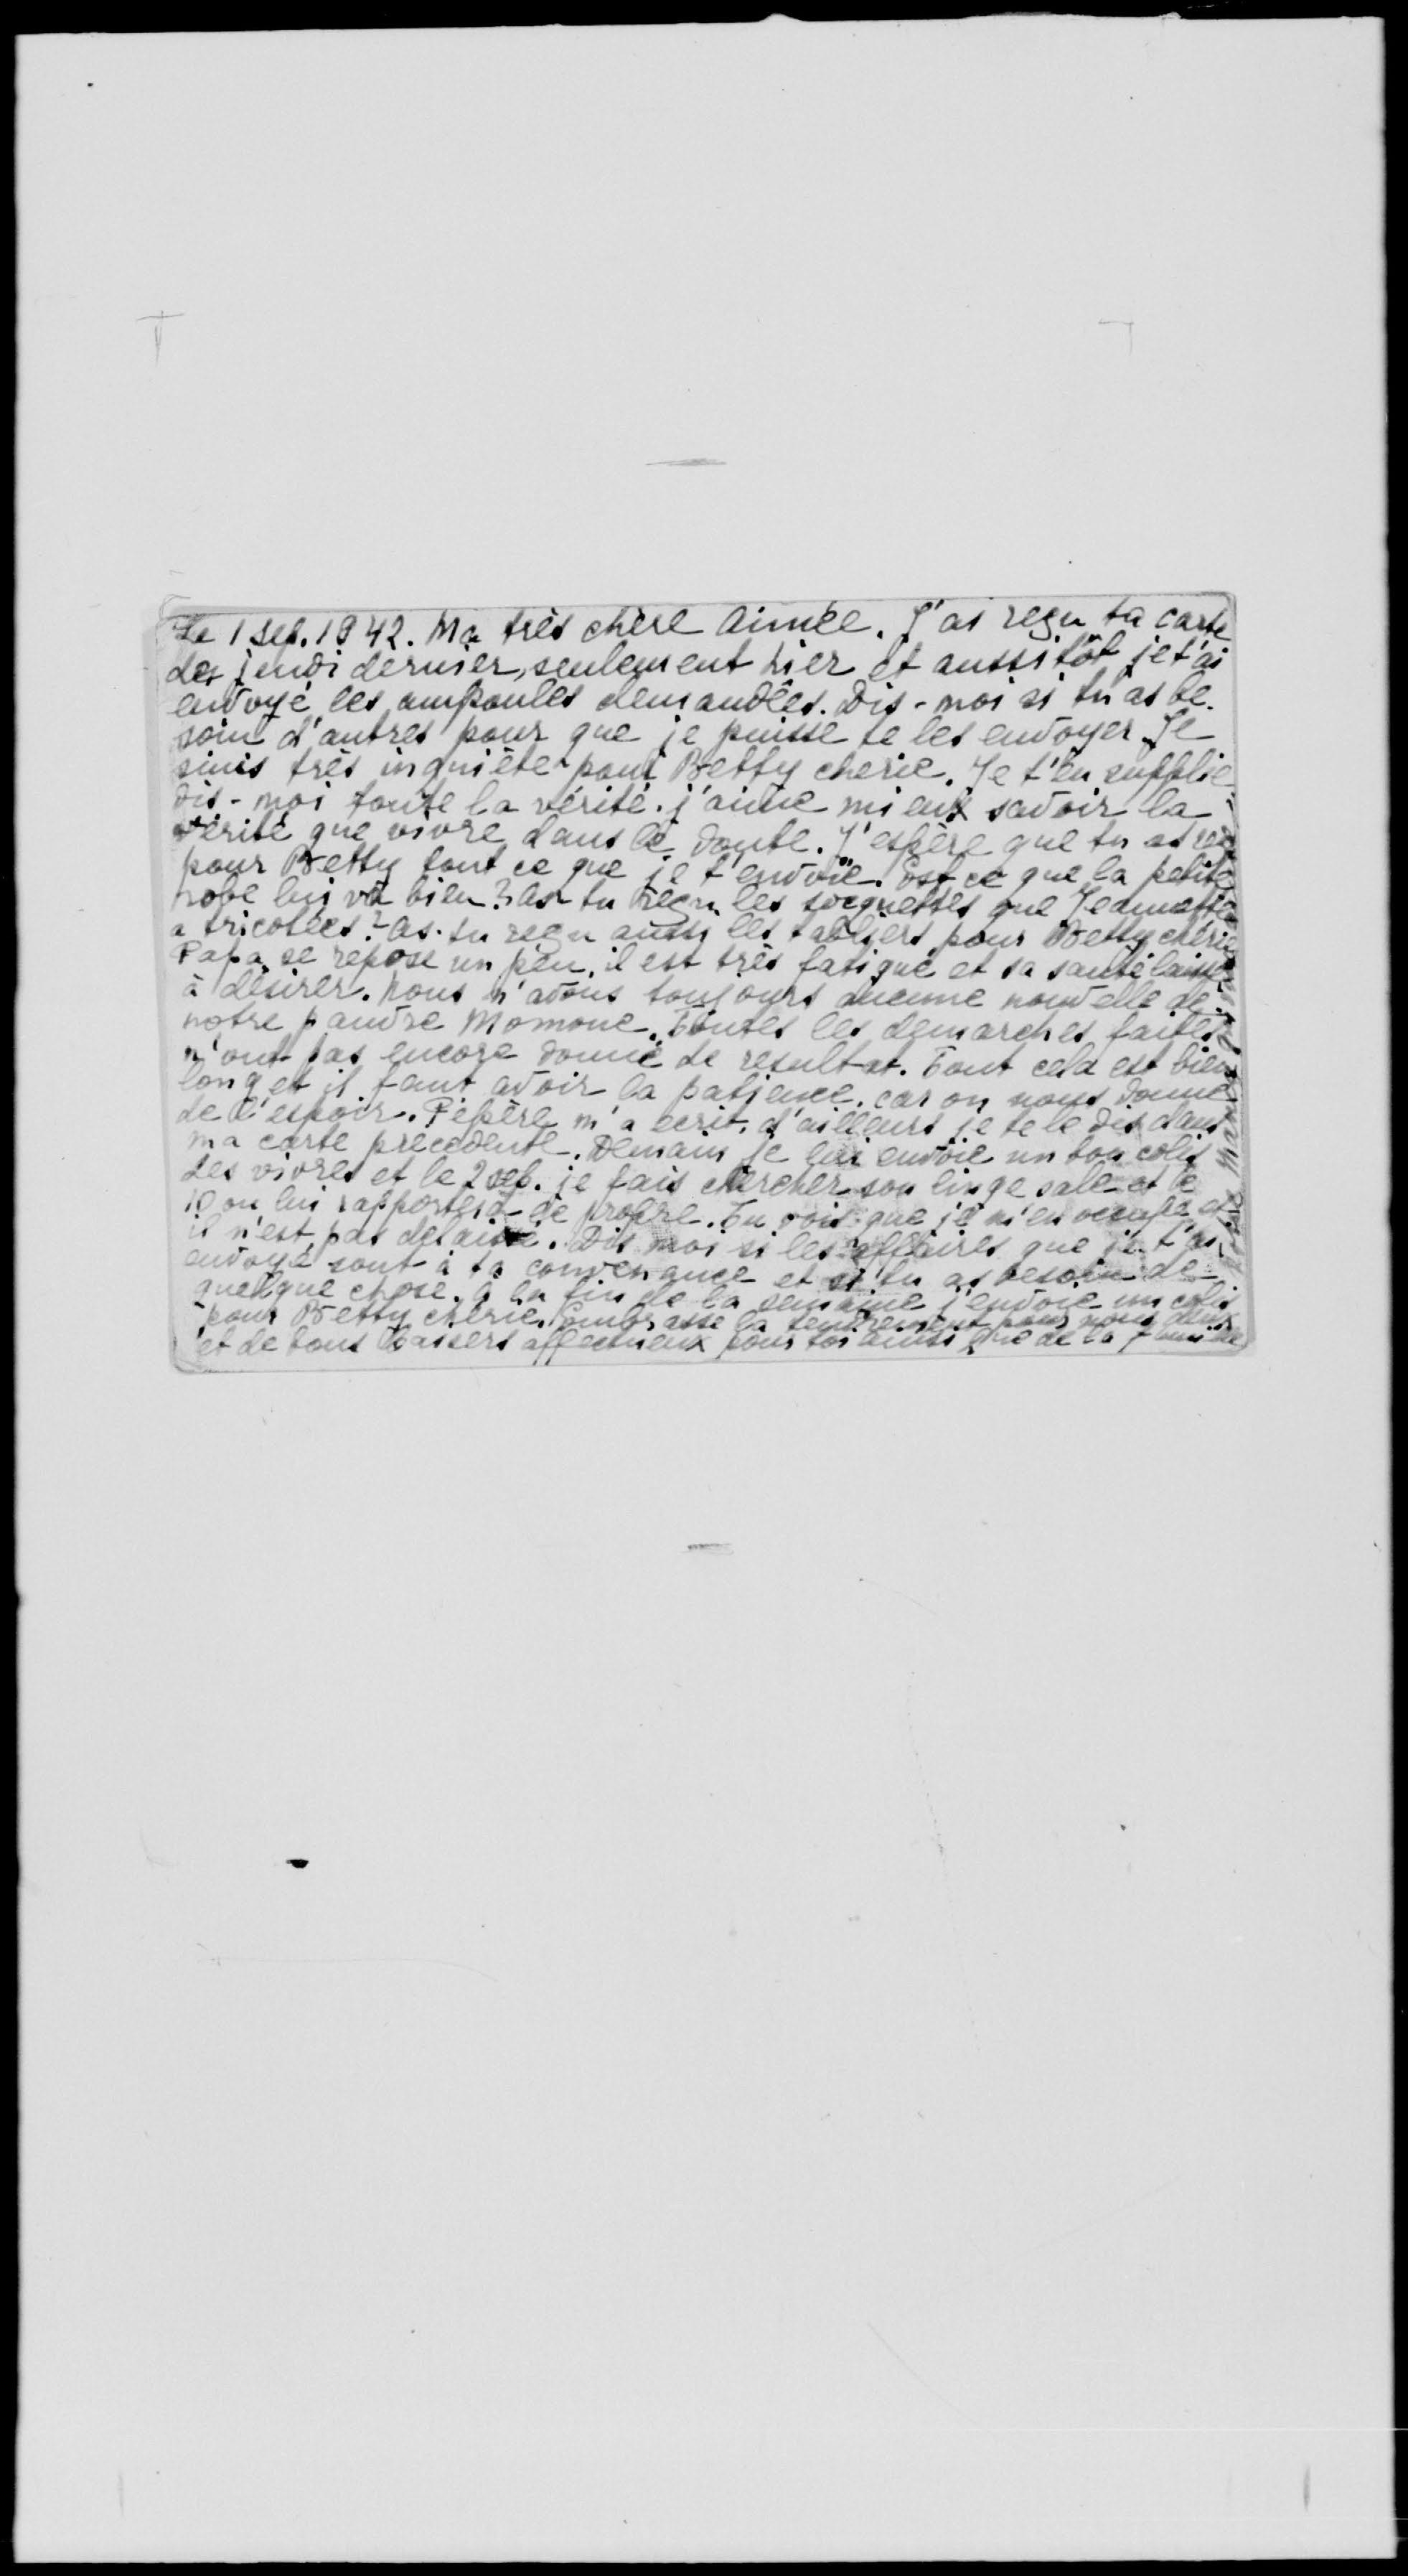 Le 1 sep. 1942. Ma très chère Aimée. J'ai reçu ta carte
de jeudi dernier, seulement hier et aussitôt je t'ai
envoyé les ampoules demandées. Dis-moi si tu as be-
soin d'autres pour que je puisse te les envoyer. Je
suis très inquiète pour Betty cherie. Je t'en supplie
dis-moi toute la vérité. j'aime mieux savoir la
vérité que vivre dans le doute. J'espère que tu as reçu
pour Betty tout ce que je t'envoie. Est ce que la petite
robe lui va bien? As-tu reçu les socquettes que Jeannette
a tricotées? As-tu reçu aussi les tabliers pour Betty chérie
Papa se repose un peu, il est très fatigué et sa santé laisse
à désirer. Nous n'avons toujours aucune nouvelle de
notre pauvre Momone. Toutes les demarches faites
n'ont pas encore donné de resultat. Tout cela est bien
long et il faut avoir la patience, car on nous donne
de l'espoir. Pépère m'a ecrit, d'ailleurs je te le dis dans
ma carte precedente. Demain je lui envoie un bon colis
des vivres et le 2 sep. je fais chercher son linge sale et le
10 on lui rapportera de propre. Tu vois que je m'en occupe et
il n'est pas delaissé. Dis moi si les affaires que je t'ai
envoyé sont à ta convenance et si tu as besoin de
quelque chose. à la fin de la semaine j'envoie un colis
pour Betty cherie. Embrasse la tendrement pour nous deux
et de bons baisers affectueux pour toi ainsi que de la famille